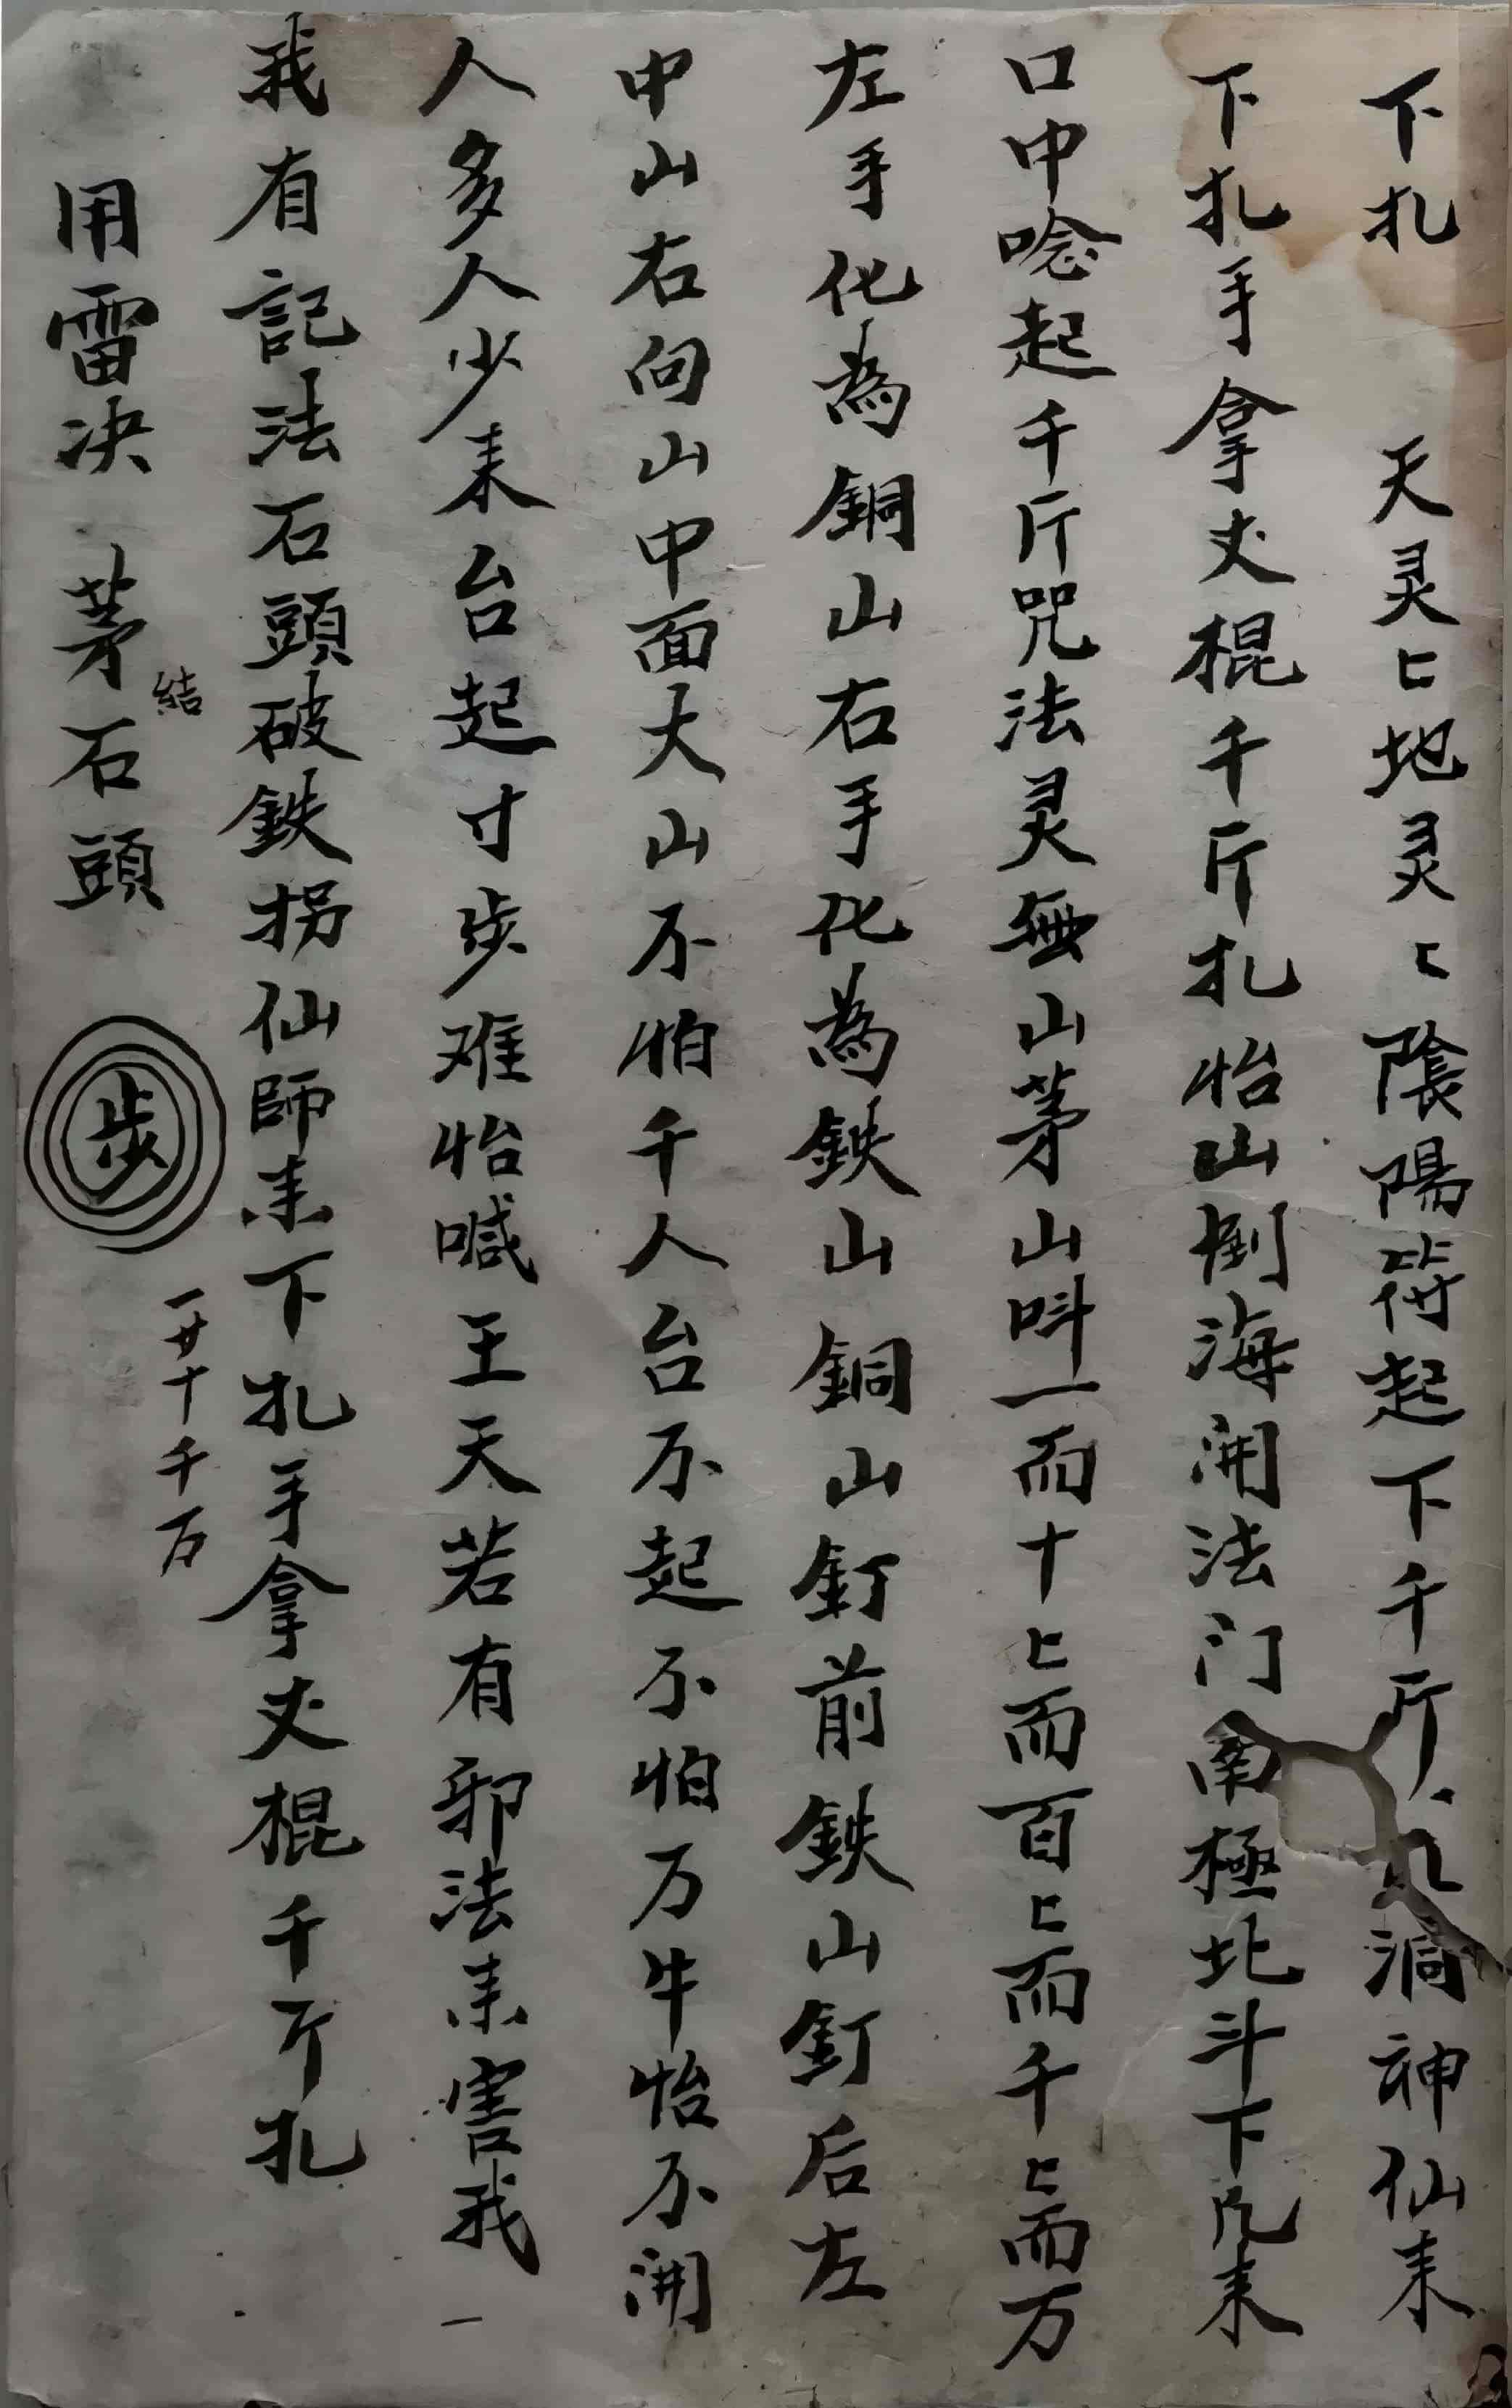 下扎 天灵〻地灵〻陰陽符起下千斤 洞神仙来
下扎手拿丈棍千斤扎怡山倒海開法门南極北斗下凡来
口中唸起千斤咒法灵無山茅山叫一而十〻而百〻而千〻而万
左手化為銅山右手化為鉄山銅山釘前鉄山釘后左
中山右向山中面大山不怕千人台不起不怕万牛怡不開
人多人少来台起寸步难怡喊王天若有邪法来害我
我有記法石頭破鉄拐仙師来下扎手拿丈棍千斤扎
用雷决 茅石頭
結
步
一廿十千万